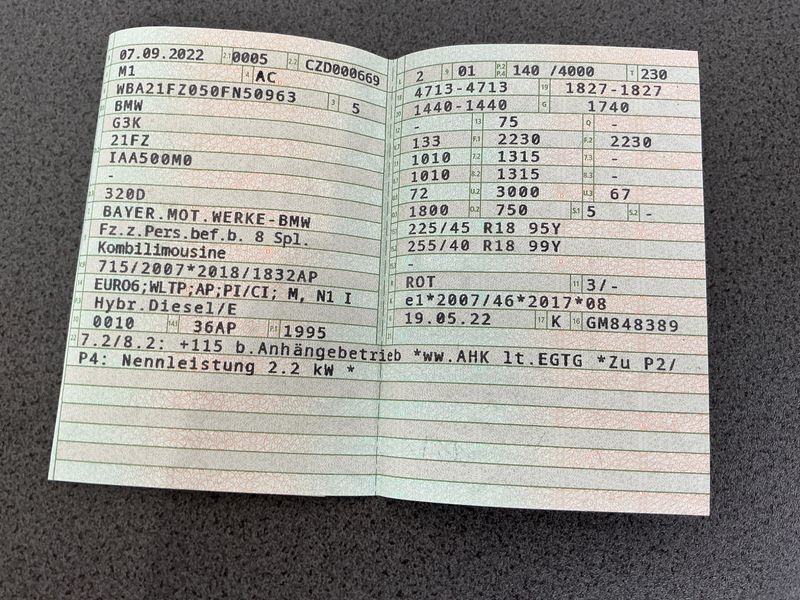 07.09.2022 2.1 0005 2.2 CZD000669
M1 4 AC
WBA21FZ050FN50963 3 5
BMW
G3K
21FZ
IAA500M0
-
320D
BAYER.MOT.WERKE-BMW
Fz.z.Pers.bef.b. 8 Spl.
Kombilimousine
715/2007*2018/1832AP
EURO6;WLTP;AP;PI/CI; M, N1 I
Hybr.Diesel/E
0010 14.1 36AP P.1 1995
2 9 01 P.2 P.4 140 /4000 T 230
4713-4713 19 1827-1827
1440-1440 G 1740
- 13 75 Q -
133 F.1 2230 F.2 2230
1010 7.2 1315 7.3 -
1010 8.2 1315 8.3 -
72 U.2 3000 U.3 67
1800 O.2 750 S.1 5 S.2 -
225/45 R18 95Y
255/40 R18 99Y
-
ROT 11 3/-
e1*2007/46*2017*08
19.05.22 17 K 16 GM848389
7.2/8.2: +115 b.Anhängebetrieb *ww.AHK lt.EGTG *Zu P2/
P4: Nennleistung 2.2 kW *